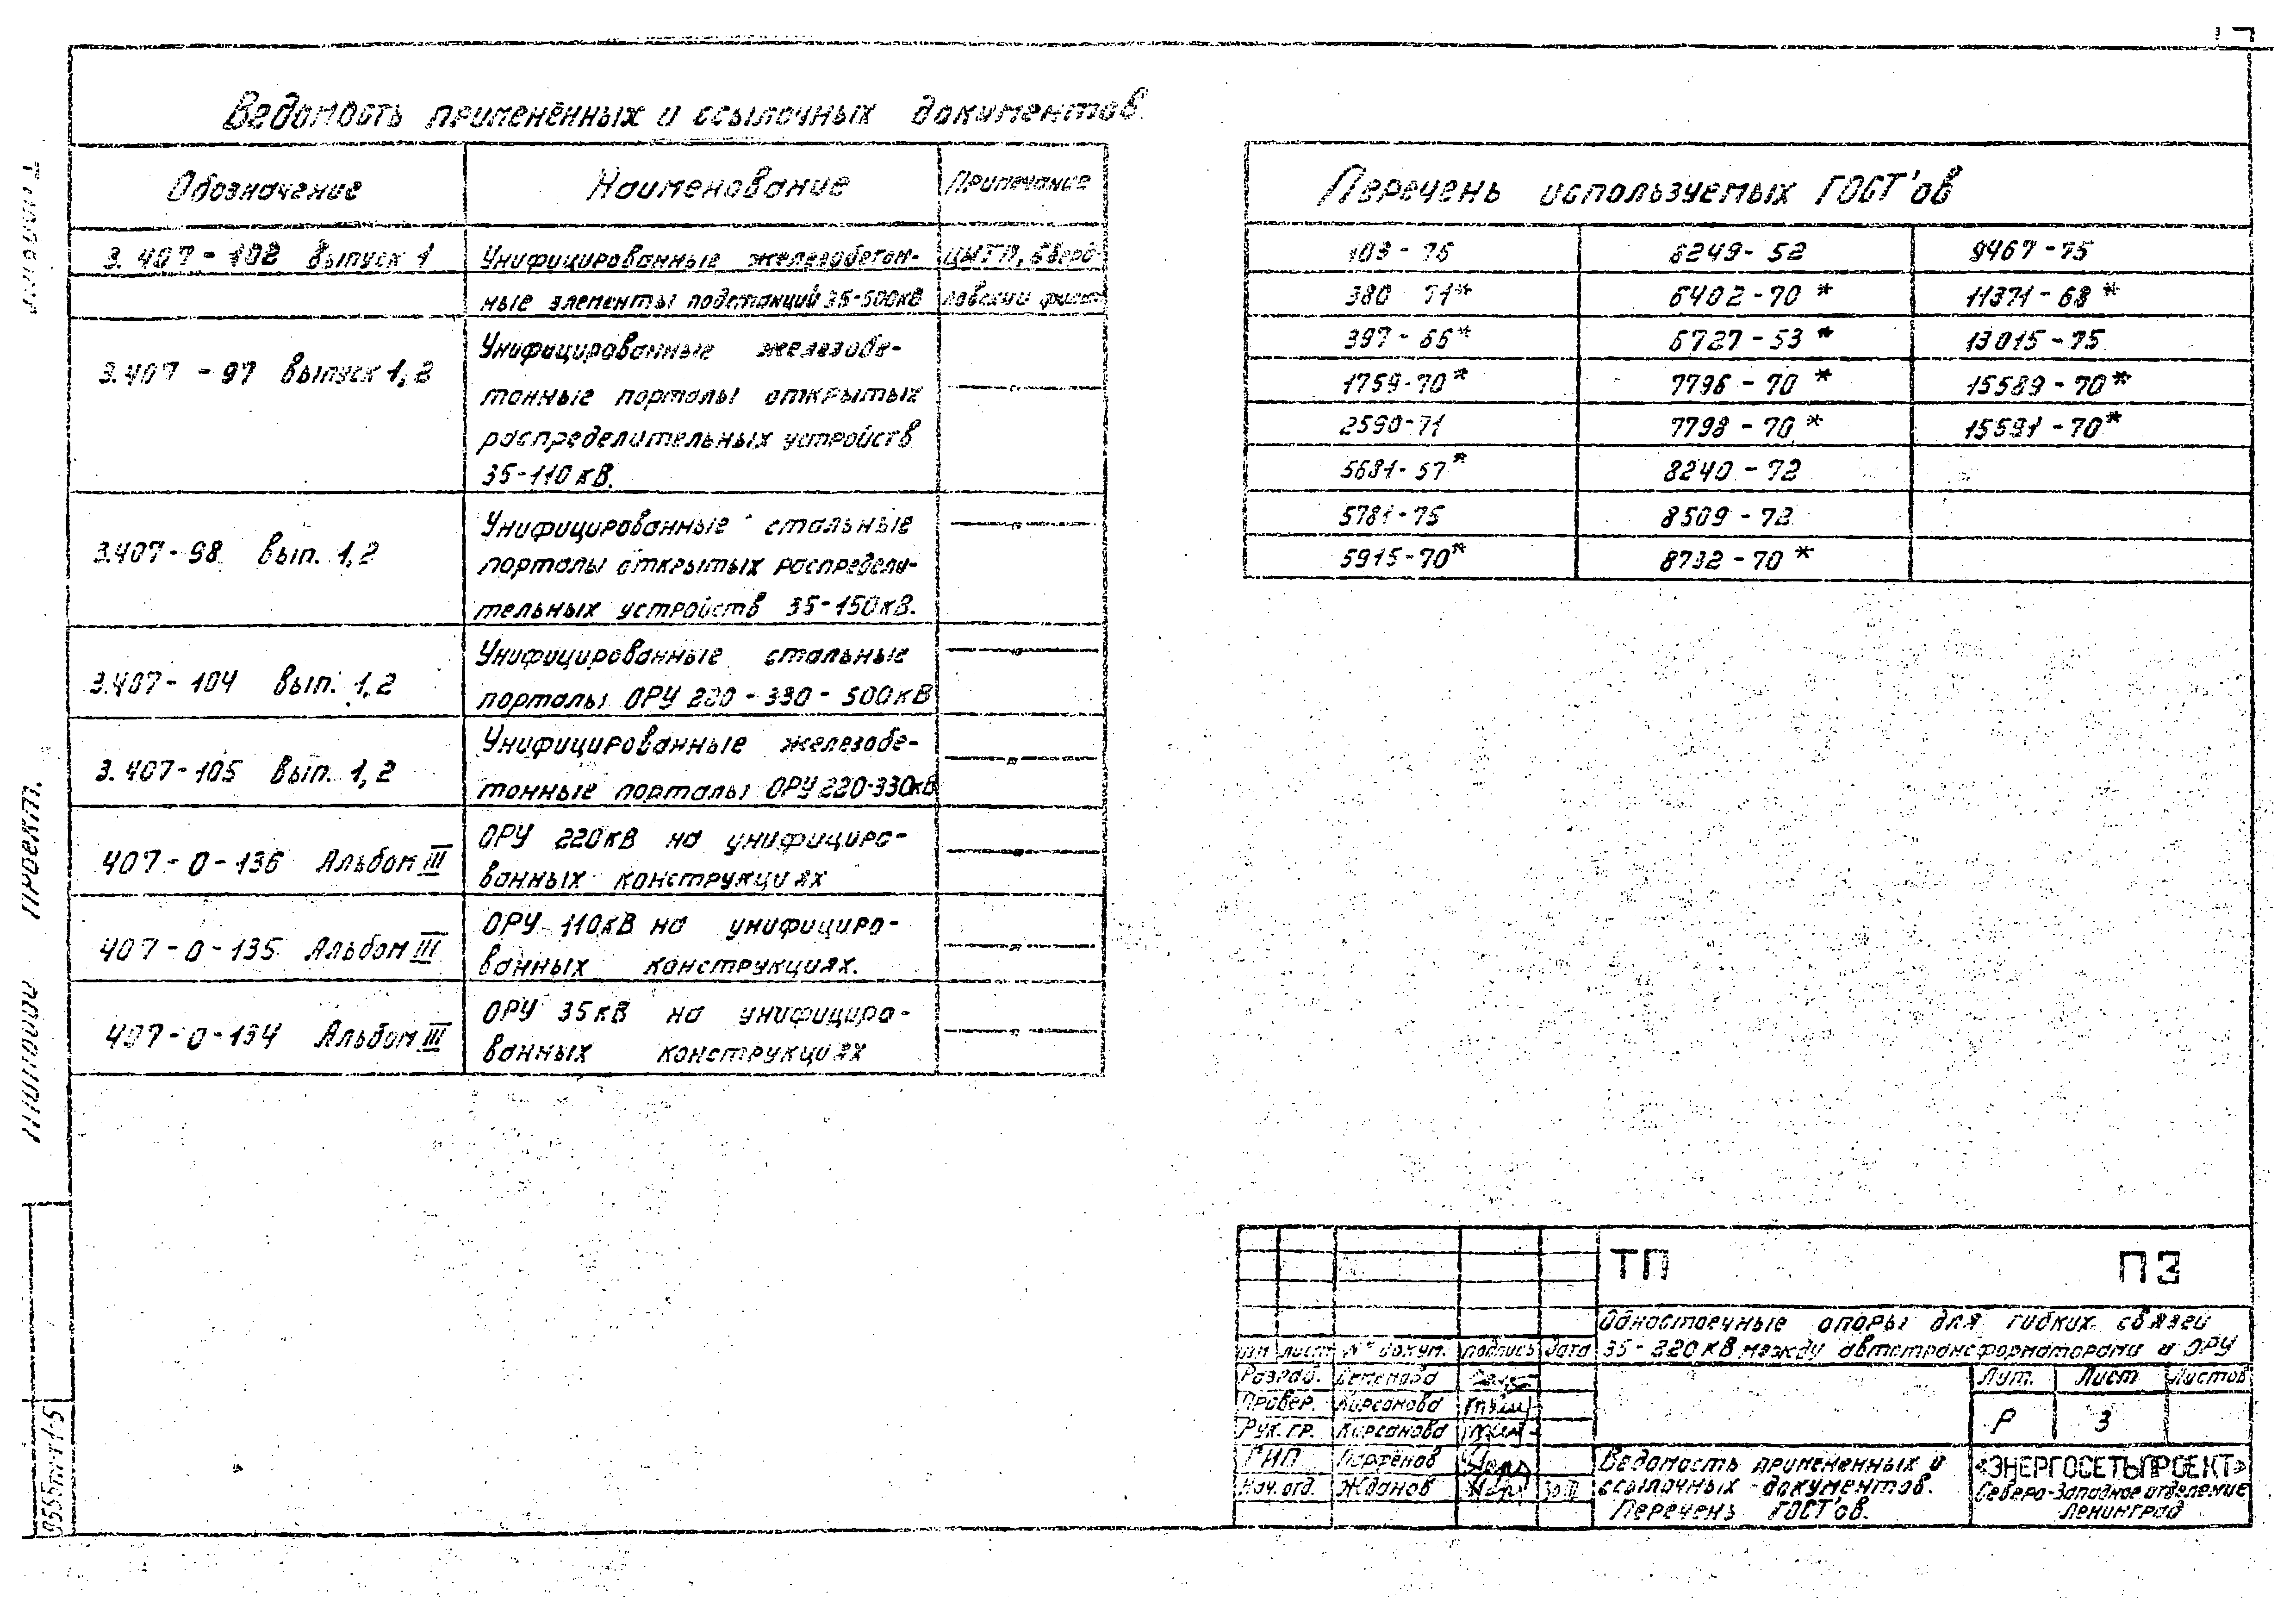 Ведомость применённых и ссылочных документов.
Обозначение Наименование Примечание
3.407-102 Выпуск 1 Унифицированные железобетон-
ные элементы подстанций 35-500кВ
3.407-97 Выпуск 1,2 Унифицированные железобе-
тонные порталы открытых
распределительных устройств
35-110 кВ.
3.407-98 Вып. 1,2 Унифицированные стальные
порталы открытых распредели-
тельных устройств 35-150кВ.
3.407-104 Вып. 1,2 Унифицированные стальные
порталы ОРУ 220-330-500кВ
3.407-105 Вып. 1,2 Унифицированные железобе-
тонные порталы ОРУ 220-330кВ
407-0-136 Альбом III ОРУ 220кВ на унифициро-
ванных конструкциях
407-0-135 Альбом III ОРУ 110кВ на унифициро-
ванных конструкциях.
407-0-134 Альбом III ОРУ 35кВ на унифициро-
ванных конструкциях
Перечень используемых ГОСТ'ов
103-76 8249-52 9467-75
380-71* 6402-70* 11371-68*
397-66* 6727-53* 13015-75
1759-70* 7796-70* 15589-70*
2590-71 7798-70* 15591-70*
5681-57* 8240-72
5781-75 8509-72
5915-70* 8732-70*
ТП ПЗ
Одностоечные опоры для гибких связей
35-220кВ между автотрансформаторами и ОРУ
лист № докум. подпись дата
Лит. Лист Листов
Р 3
Разраб. Семенова
Провер. Кирсанова
Рук. гр. Кирсанова
ГИП Парфенов
Нач. отд. Жданов
Ведомость примененных и
ссылочных документов.
Перечень ГОСТ'ов.
«ЭНЕРГОСЕТЬПРОЕКТ»
Северо-Западное отделение
Ленинград
проект.
Типовой